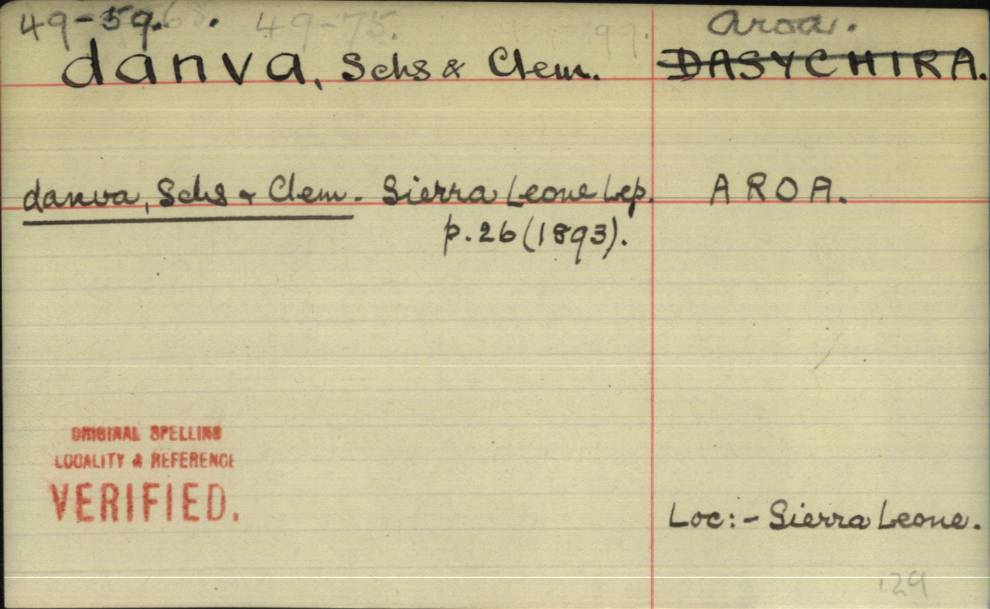 49-59. 49-75. Aroa.
danva, Schs & Clem. DASYCHIRA.
danva, Schs & Clem. Sierra Leone Lep. AROA.
p. 26 (1893).
ORIGINAL SPELLING
LOCALITY & REFERENCE
VERIFIED.
Loc:- Sierra Leone.
129